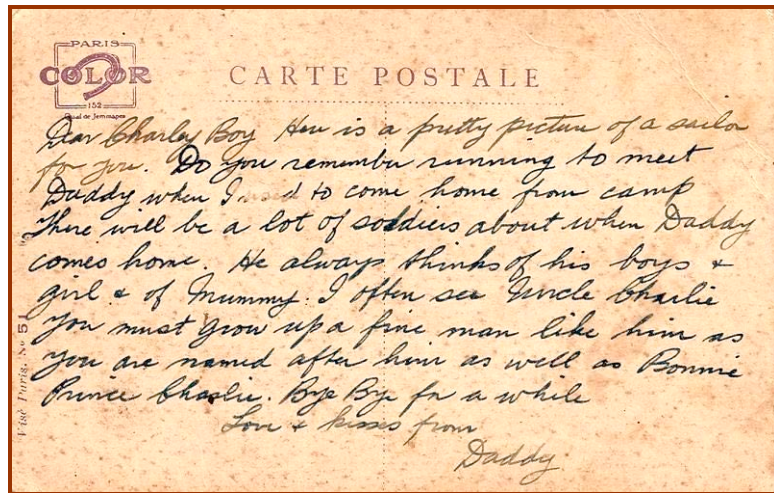 PARIS
COLOR
152
Quai de Jemmapes
CARTE POSTALE
Dear Charley Boy Here is a pretty picture of a sailor
for you. Do you remember running to meet
Daddy when I used to come home from camp
There will be a lot of soldiers about when Daddy
comes home. He always thinks of his boys &
girl & of Mummy. I often see Uncle Charlie
You must grow up a fine man like him as
you are named after him as well as Bonnie
Prince Charlie. Bye Bye for a while
Love & kisses from
Daddy
Visé Paris. No 51